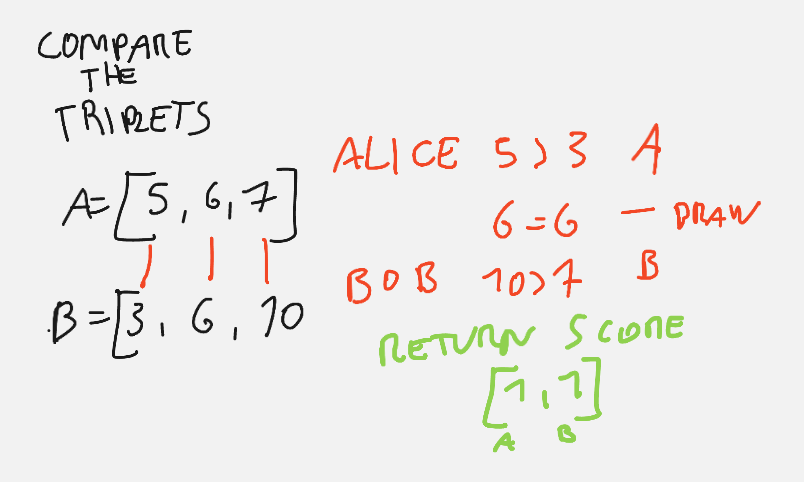 COMPARE
THE
TRIPLETS
A=[5, 6, 7]
B=[3, 6, 10
ALICE 5>3 A
6=6 — DRAW
BOB 10>7 B
RETURN SCORE
[1, 1]
A B